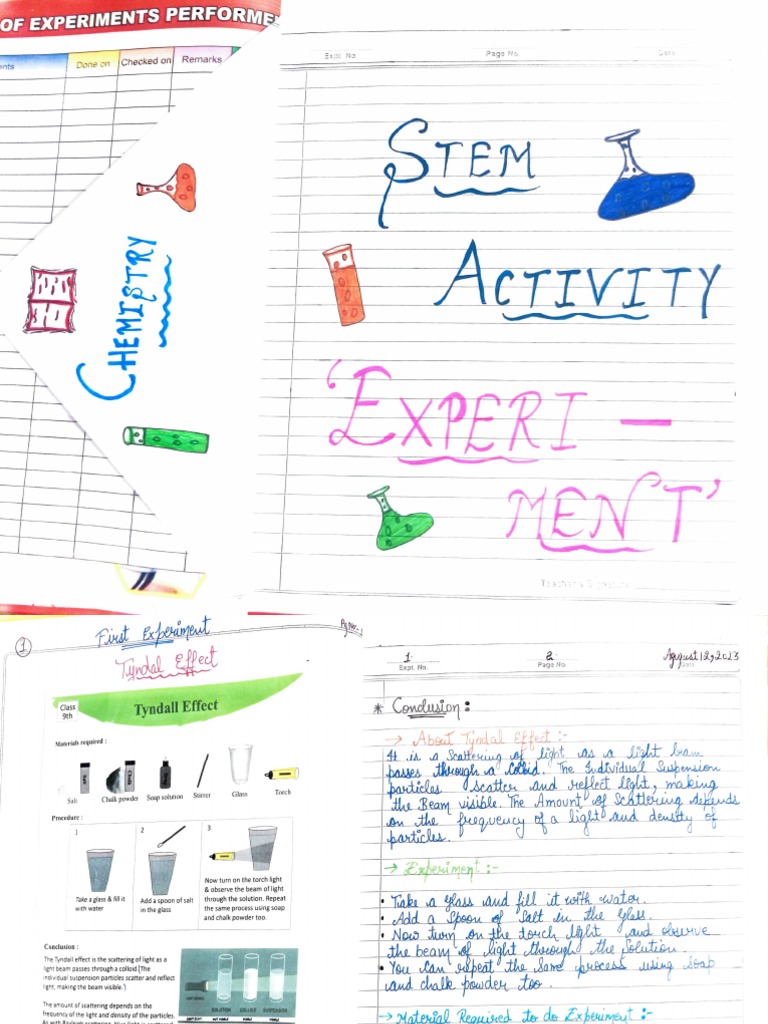 OF EXPERIMENTS PERFORME
ents
Done on
Checked on
Remarks
CHEMISTRY
Expt. No
Page No.
Date
STEM
ACTIVITY
'EXPERI-
MENT'
Teacher's Signature
1
First Experiment
Pg no-1
Tyndal Effect
Class
9th
Tyndall Effect
Materials required :
Salt
Chalk powder
Soap solution
Stirrer
Glass
Torch
Procedure :
1
Take a glass & fill it
with water
2
Add a spoon of salt
in the glass
3
Now turn on the torch light
& observe the beam of light
through the solution. Repeat
the same process using soap
and chalk powder too.
Conclusion :
The Tyndall effect is the scattering of light as a
light beam passes through a colloid. The
individual suspension particles scatter and reflect
light, making the beam visible.
The amount of scattering depends on the
frequency of the light and density of the particles.
SOLUTION
COLLOID
SUSPENSION
1
Expt. No.
2
Page No.
August 12, 2023
* Conclusion :
→ About Tyndal Effect :-
It is a Scattering of light as a light beam
passes through a colloid. The Individual Suspension
particles scatter and reflect light, making
the Beam visible. The Amount of Scattering depends
on the frequency of a light and density of
particles.
→ Experiment :-
• Take a glass and fill it with water.
• Add a Spoon of Salt in the Glass.
• Now turn on the torch light and observe
the beam of light through the Solution.
• You can repeat the same process using soap
and chalk powder too.
→ Material Required to do Experiment :-